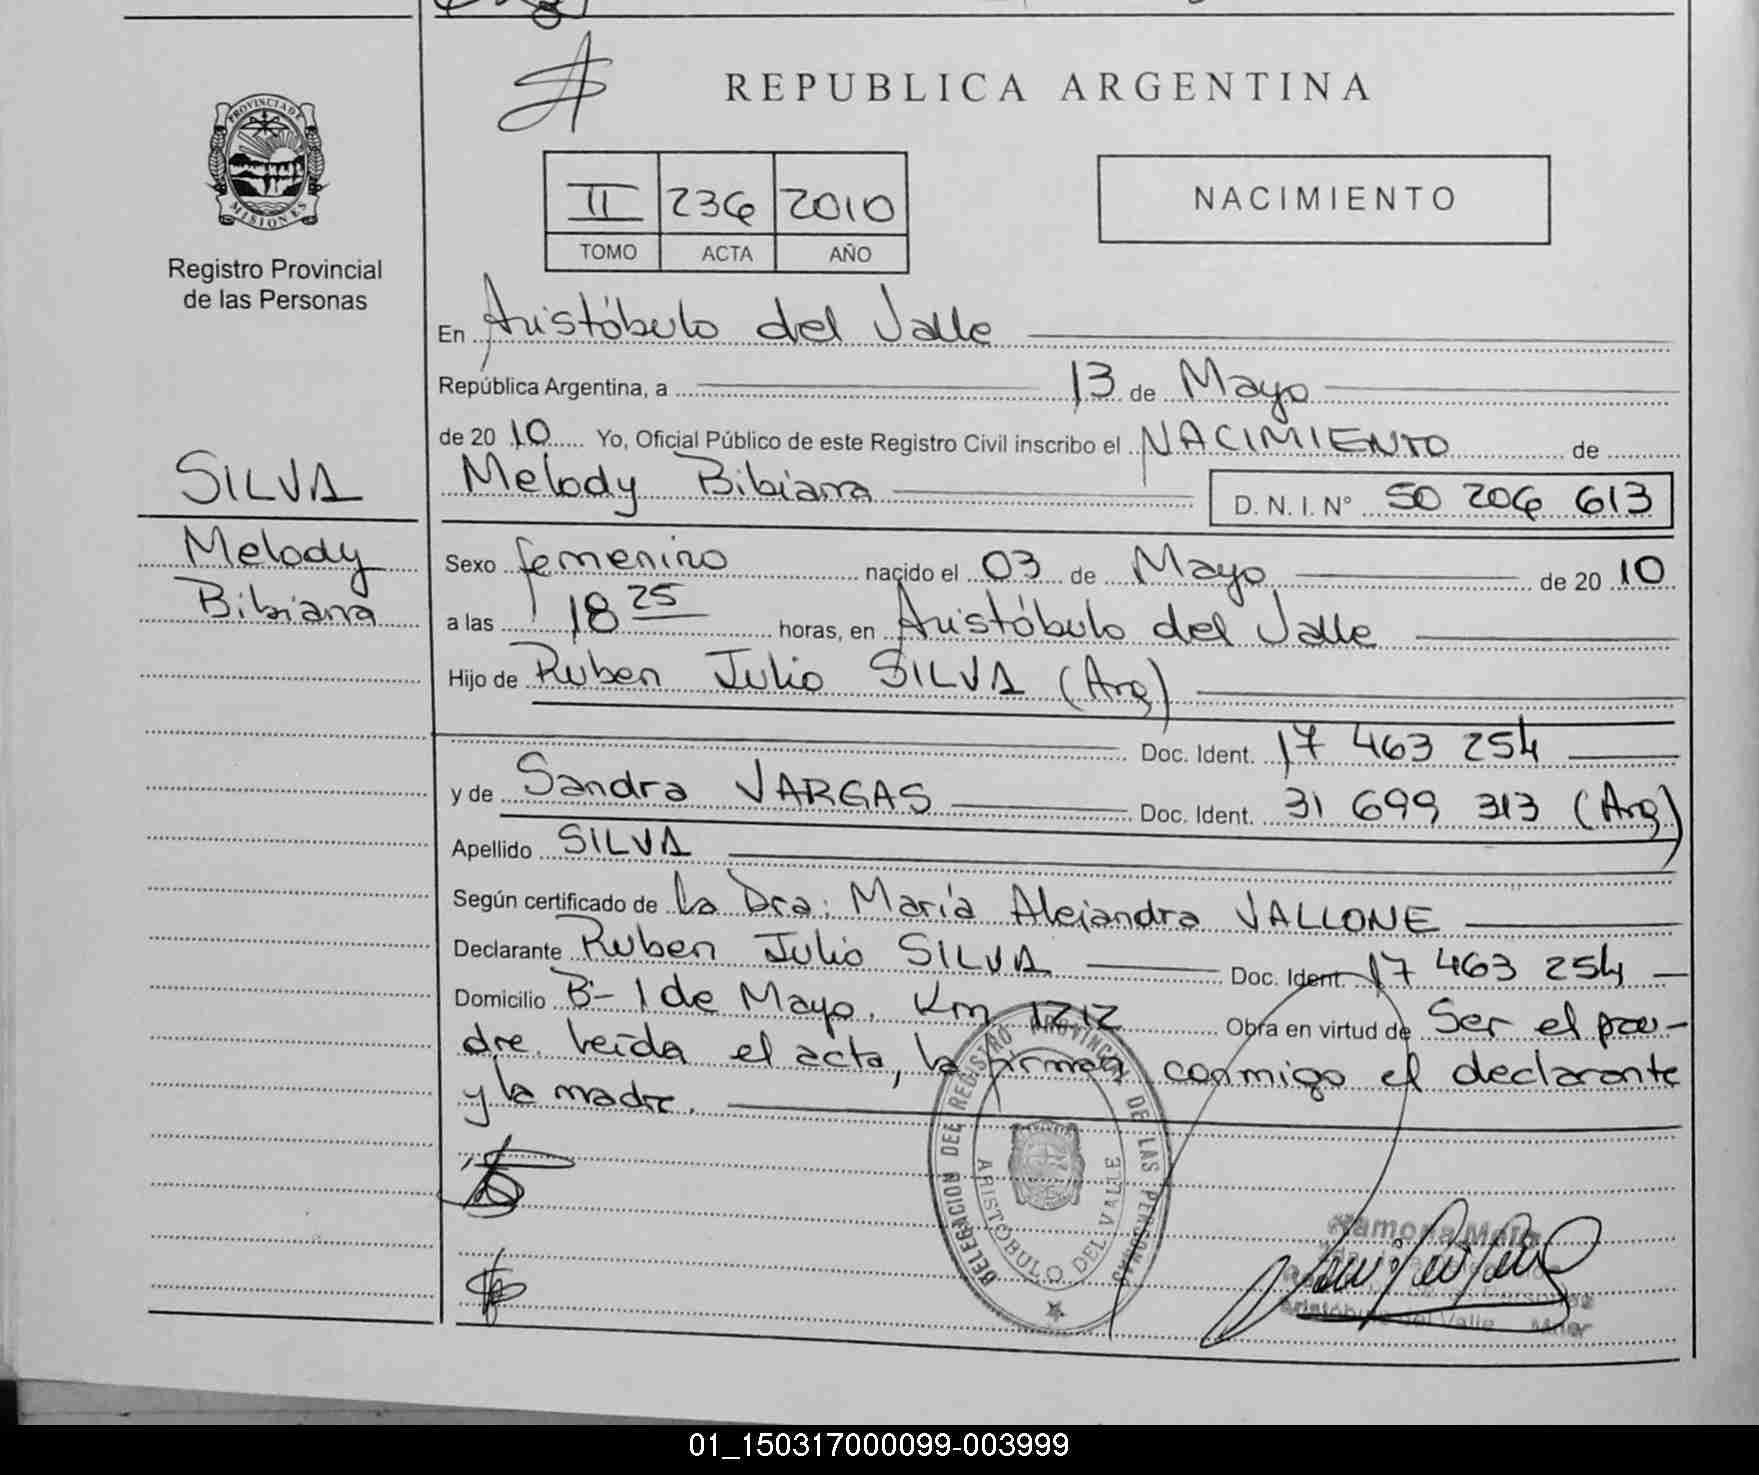 REPUBLICA ARGENTINA
PROVINCIA DE
MISIONES
Registro Provincial
de las Personas
II 236 2010
TOMO ACTA AÑO
NACIMIENTO
En Aristóbulo del Valle
República Argentina, a 13 de Mayo
de 20 10 Yo, Oficial Público de este Registro Civil inscribo el NACIMIENTO de
Melody Bibiana D. N. I. N° 50 206 613
SILVA
Melody
Bibiana
Sexo femenino nacido el 03 de Mayo de 20 10
a las 18 25 horas, en Aristóbulo del Valle
Hijo de Ruben Julio SILVA (Arg)
Doc. Ident. 17 463 254
y de Sandra VARGAS Doc. Ident. 31 699 313 (Arg)
Apellido SILVA
Según certificado de la Dra. María Alejandra VALLONE
Declarante Ruben Julio SILVA Doc. Ident. 17 463 254
Domicilio B- 1 de Mayo. Km 1212 Obra en virtud de Ser el pa-
dre. leída el acta, la firman conmigo el declarante
y la madre.
DELEGACION DEL REGISTRO PROVINCIAL DE LAS PERSONAS
ARISTOBULO DEL VALLE
Ramona
Aristóbulo del Valle
01_150317000099-003999